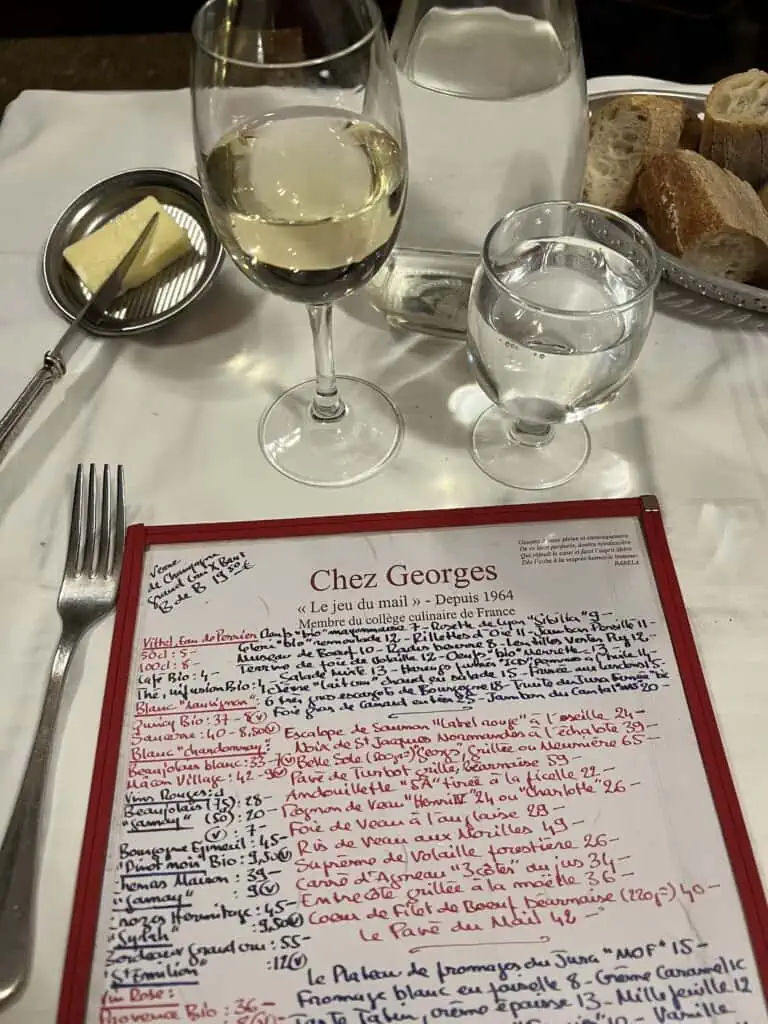 Verre
de Champagne
Grand Cru X Bent
B de B 19,50 €
RABELA
Chez Georges
« Le jeu du mail » - Depuis 1964
Membre du collège culinaire de France
Oeufs "bio" mayonnaise 7 - Rosette de Lyon "Sibilia" 9 -
Céleri "bio" remoulade 12 - Rillettes d'Oie 11 - Jambon Persillé 11 -
Museau de Boeuf 10 - Radis beurre 8 - Lentilles vertes Puy 12 -
Terrine de foie de volaille 12 - Oeufs "bio" Meurette 13 -
Salade mixte 13 - Harengs fumés pommes à l'huile 14
Chèvre chaud en salade 15 -
6 très gros escargots de Bourgogne 18 -
Foie gras de Canard entier 25 - Jambon du Cantal 20 -
Escalope de Saumon "Label rouge" à l'oseille 24 -
Noix de St Jacques Normandes à l'échalote 39 -
Belle Sole Grillée ou Meunière 65 -
Pavé de Turbot grillé, béarnaise 59 -
Andouillette "5A" tirée à la ficelle 22 -
Rognon de Veau "Henriette" 24 ou "Charlotte" 26 -
Foie de Veau à l'anglaise 29 -
Ris de Veau aux Morilles 49 -
Suprême de Volaille forestière 26 -
Carré d'Agneau "3 côtes" du jus 34 -
Entrecôte grillée à la moëlle 36 -
Coeur de Filet de Boeuf béarnaise (220gr) 40 -
Le Pavé du Mail 42 -
Le Plateau de fromages du Jura "MOF" 15 -
Fromage blanc en faisselle 8 - Crème Caramel
Tarte Tatin, crème épaisse 13 - Millefeuille 12
10 - Vanille
Vittel, Eau de Perrier
50cl : 5 -
100cl : 8 -
Café Bio : 4 -
Thé, infusion Bio : 4
Blanc "Sauvignon"
Quincy Bio : 37 - 8 (v)
Sancerre : 40 - 8,50 (v)
Blanc "chardonnay" :
Beaujolais blanc : 33 - 7 (v)
Mâcon Village : 42 - 9 (v)
Vins Rouges :
Beaujolais (75) : 28 -
"Gamay" (50) : 20 -
(v) : 7 -
Bourgogne Epineuil : 45 -
"Pinot noir" Bio : 9,50 (v)
Chenas Maison : 39 -
"Gamay" : 9 (v)
Crozes Hermitage : 45 -
"Syrah" : 9,50 (v)
Bordeaux grand cru : 55 -
"St Emilion" : 12 (v)
Vin Rose :
Provence Bio : 36 -